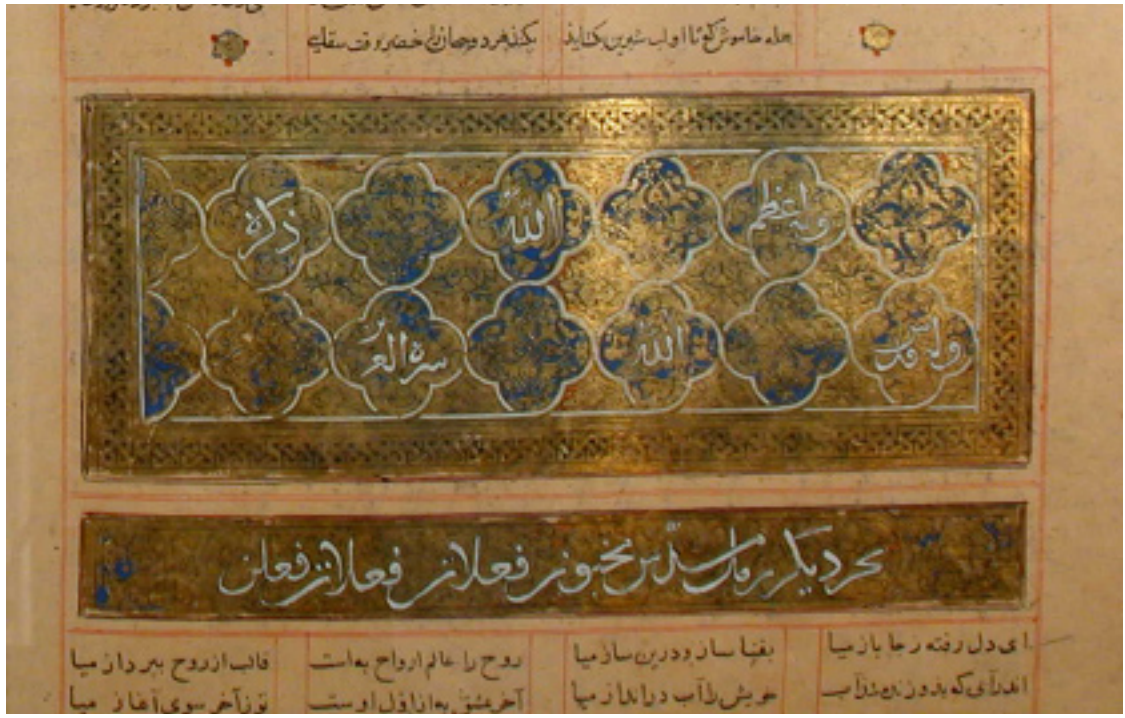 هله خاموش تا او لب شیرین بکشاید بکند هر دو جهان را خضر وقت سقایت
وله اعظم الله ذکره
وله قدس الله سره العز
بحر دیگر رمل مسدس مخبون فعلاتن فعلاتن فعلن
ای دل رفته ز جا باز میا بفنا ساز و درین ساز میا روح را عالم ارواح به است قالب از روح بپرداز میا
اندرآبی که بدو زنده شد آب خویش را آب درانداز میا آخر عشق به از اول اوست تو ز آخر سوی آغاز میا